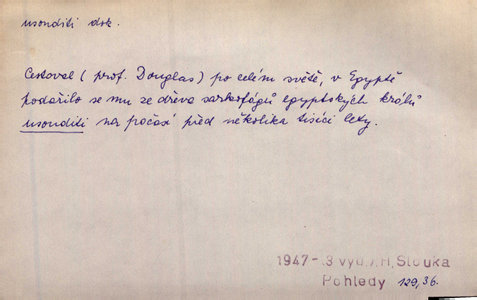 usouditi dok.
Cestoval (prof. Douglas) po celém světě, v Egyptě
podařilo se mu ze dřeva sarkofágů egyptských králů
usouditi na počasí před několika tisíci lety.
1947 - 3 vyd, H, Slouka
Pohledy 129,36.